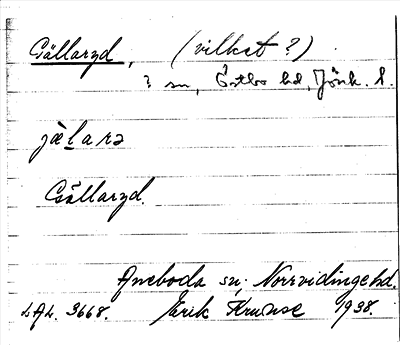 Gällaryd, (vilket?)
? sn, Östbo hd, Jönk. l.
jælarə
Gällaryd.
Aneboda sn; Norrvidinge hd.
LAL. 3668. Erik Kranse 1938.